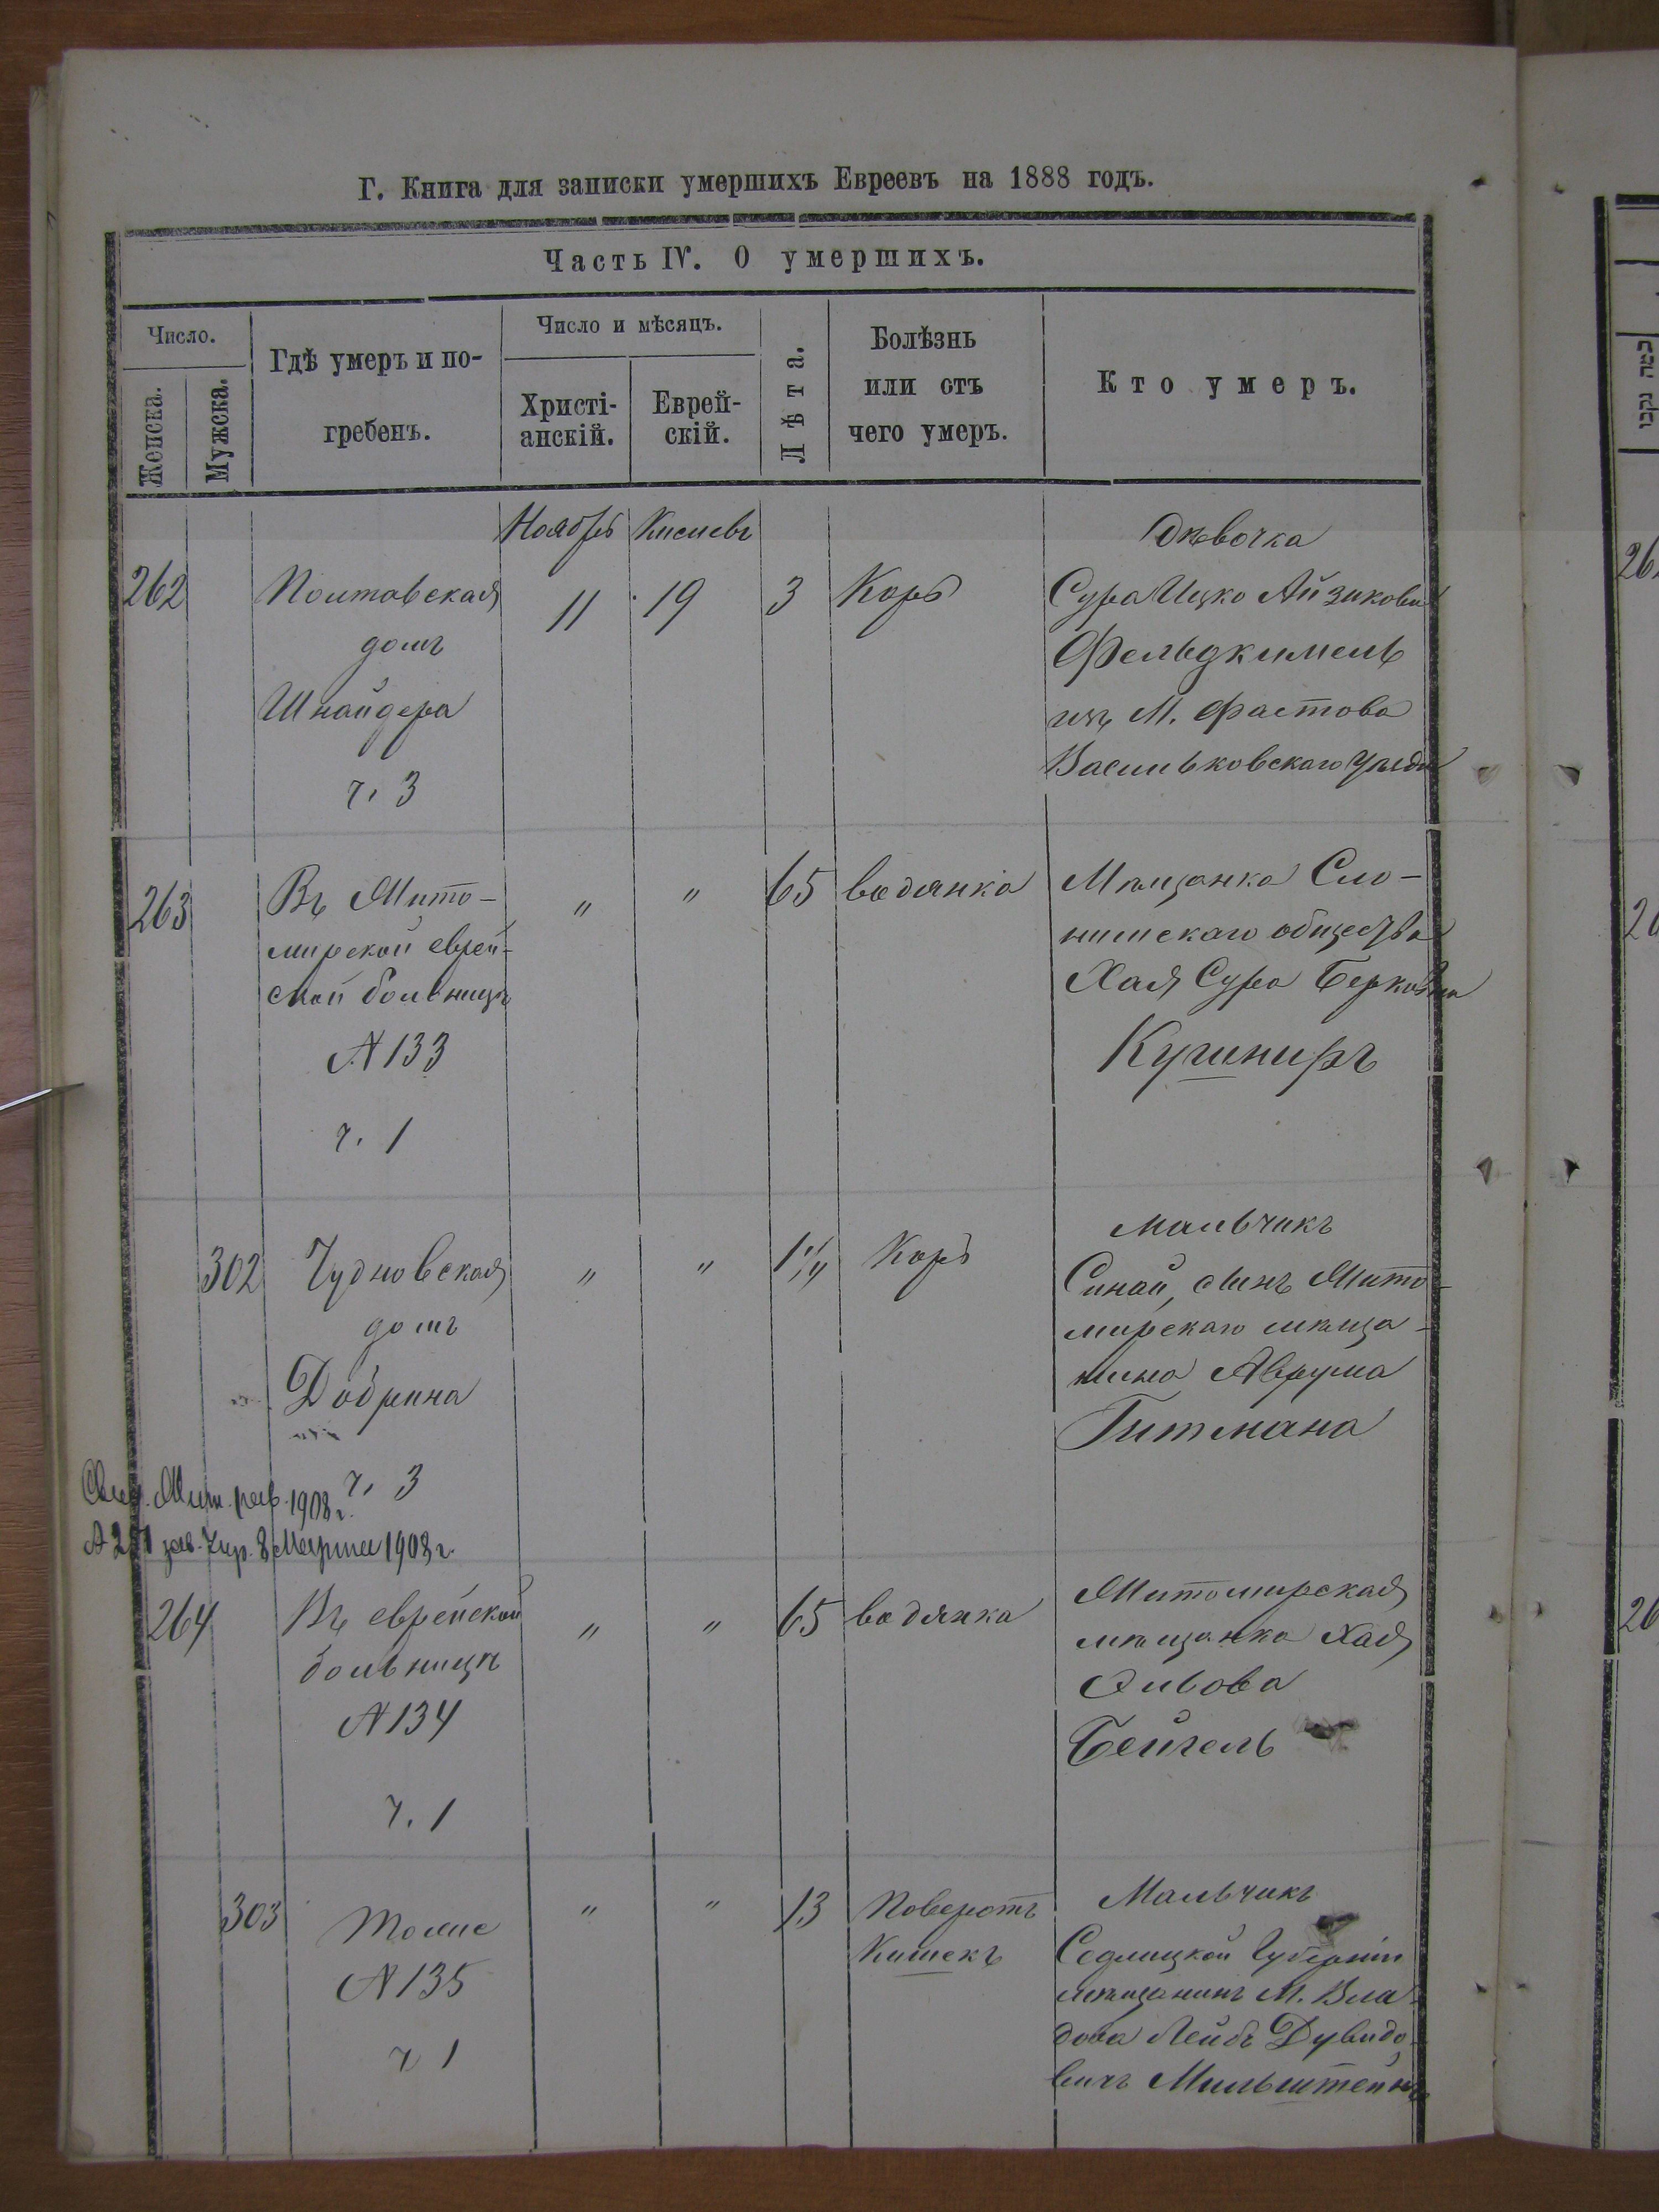 Г. Книга для записки умершихъ Евреевъ на 1888 годъ.
Часть IV. О умершихъ.
Число.
Женска.
Мужска.
Гдѣ умеръ и по-
гребенъ.
Число и мѣсяцъ.
Христі-
анскій.
Еврей-
скій.
Лѣта.
Болѣзнь
или отъ
чего умеръ.
Кто умеръ.
Ноябрь
Кислевъ
262
Полтавская
домъ
Шнайдера
ч. 3
11
19
3
Корь
Дѣвочка
Сура Ицко Айзикова
Фельдкимель
изъ М. Фастова
Васильковскаго уѣзда
263
Въ Жито-
мирской еврей-
ской больницѣ
№ 133
ч. 1
"
"
65
водянка
Мѣщанка Сло-
нимскаго общества
Хая Сура Беркова
Кушниръ
302
Чудновская
домъ
Добрина
ч. 3
"
"
Корь
Мальчикъ
Синай, сынъ Жито-
мирскаго мѣща-
нина Аврума
Гитмана
Жит. 1908 г.
8 Марта 1908 г.
264
Въ еврейской
больницѣ
№ 134
ч. 1
"
"
65
водянка
Житомирская
мѣщанка Хая
Бейгель
303
Тоже
№ 135
ч 1
"
"
13
Поворотъ
Кишекъ
Мальчикъ
Седлицкой Губерніи
мѣщанинъ М. Вла-
дова Лейбъ Дувидо-
вичъ Мильштейнъ